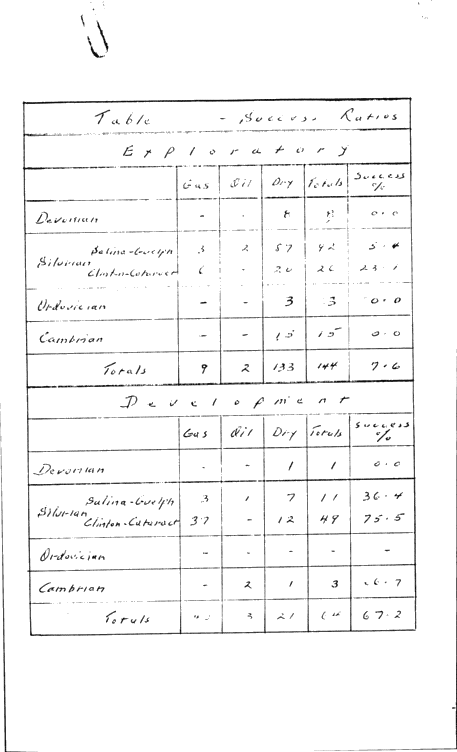 Table - Success Ratios
Exploratory
Gas Oil Dry Totals Success %
Devonian - - 8 8 0.0
Silurian
Salina-Guelph 3 2 87 92 5.4
Clinton-Cataract 6 - 20 26 23.1
Ordovician - - 3 3 0.0
Cambrian - - 15 15 0.0
Totals 9 2 133 144 7.6
Development
Gas Oil Dry Totals Success %
Devonian - - 1 1 0.0
Silurian
Salina-Guelph 3 1 7 11 36.4
Clinton-Cataract 37 - 12 49 75.5
Ordovician - - - - -
Cambrian - 2 1 3 66.7
Totals 3 21 64 67.2